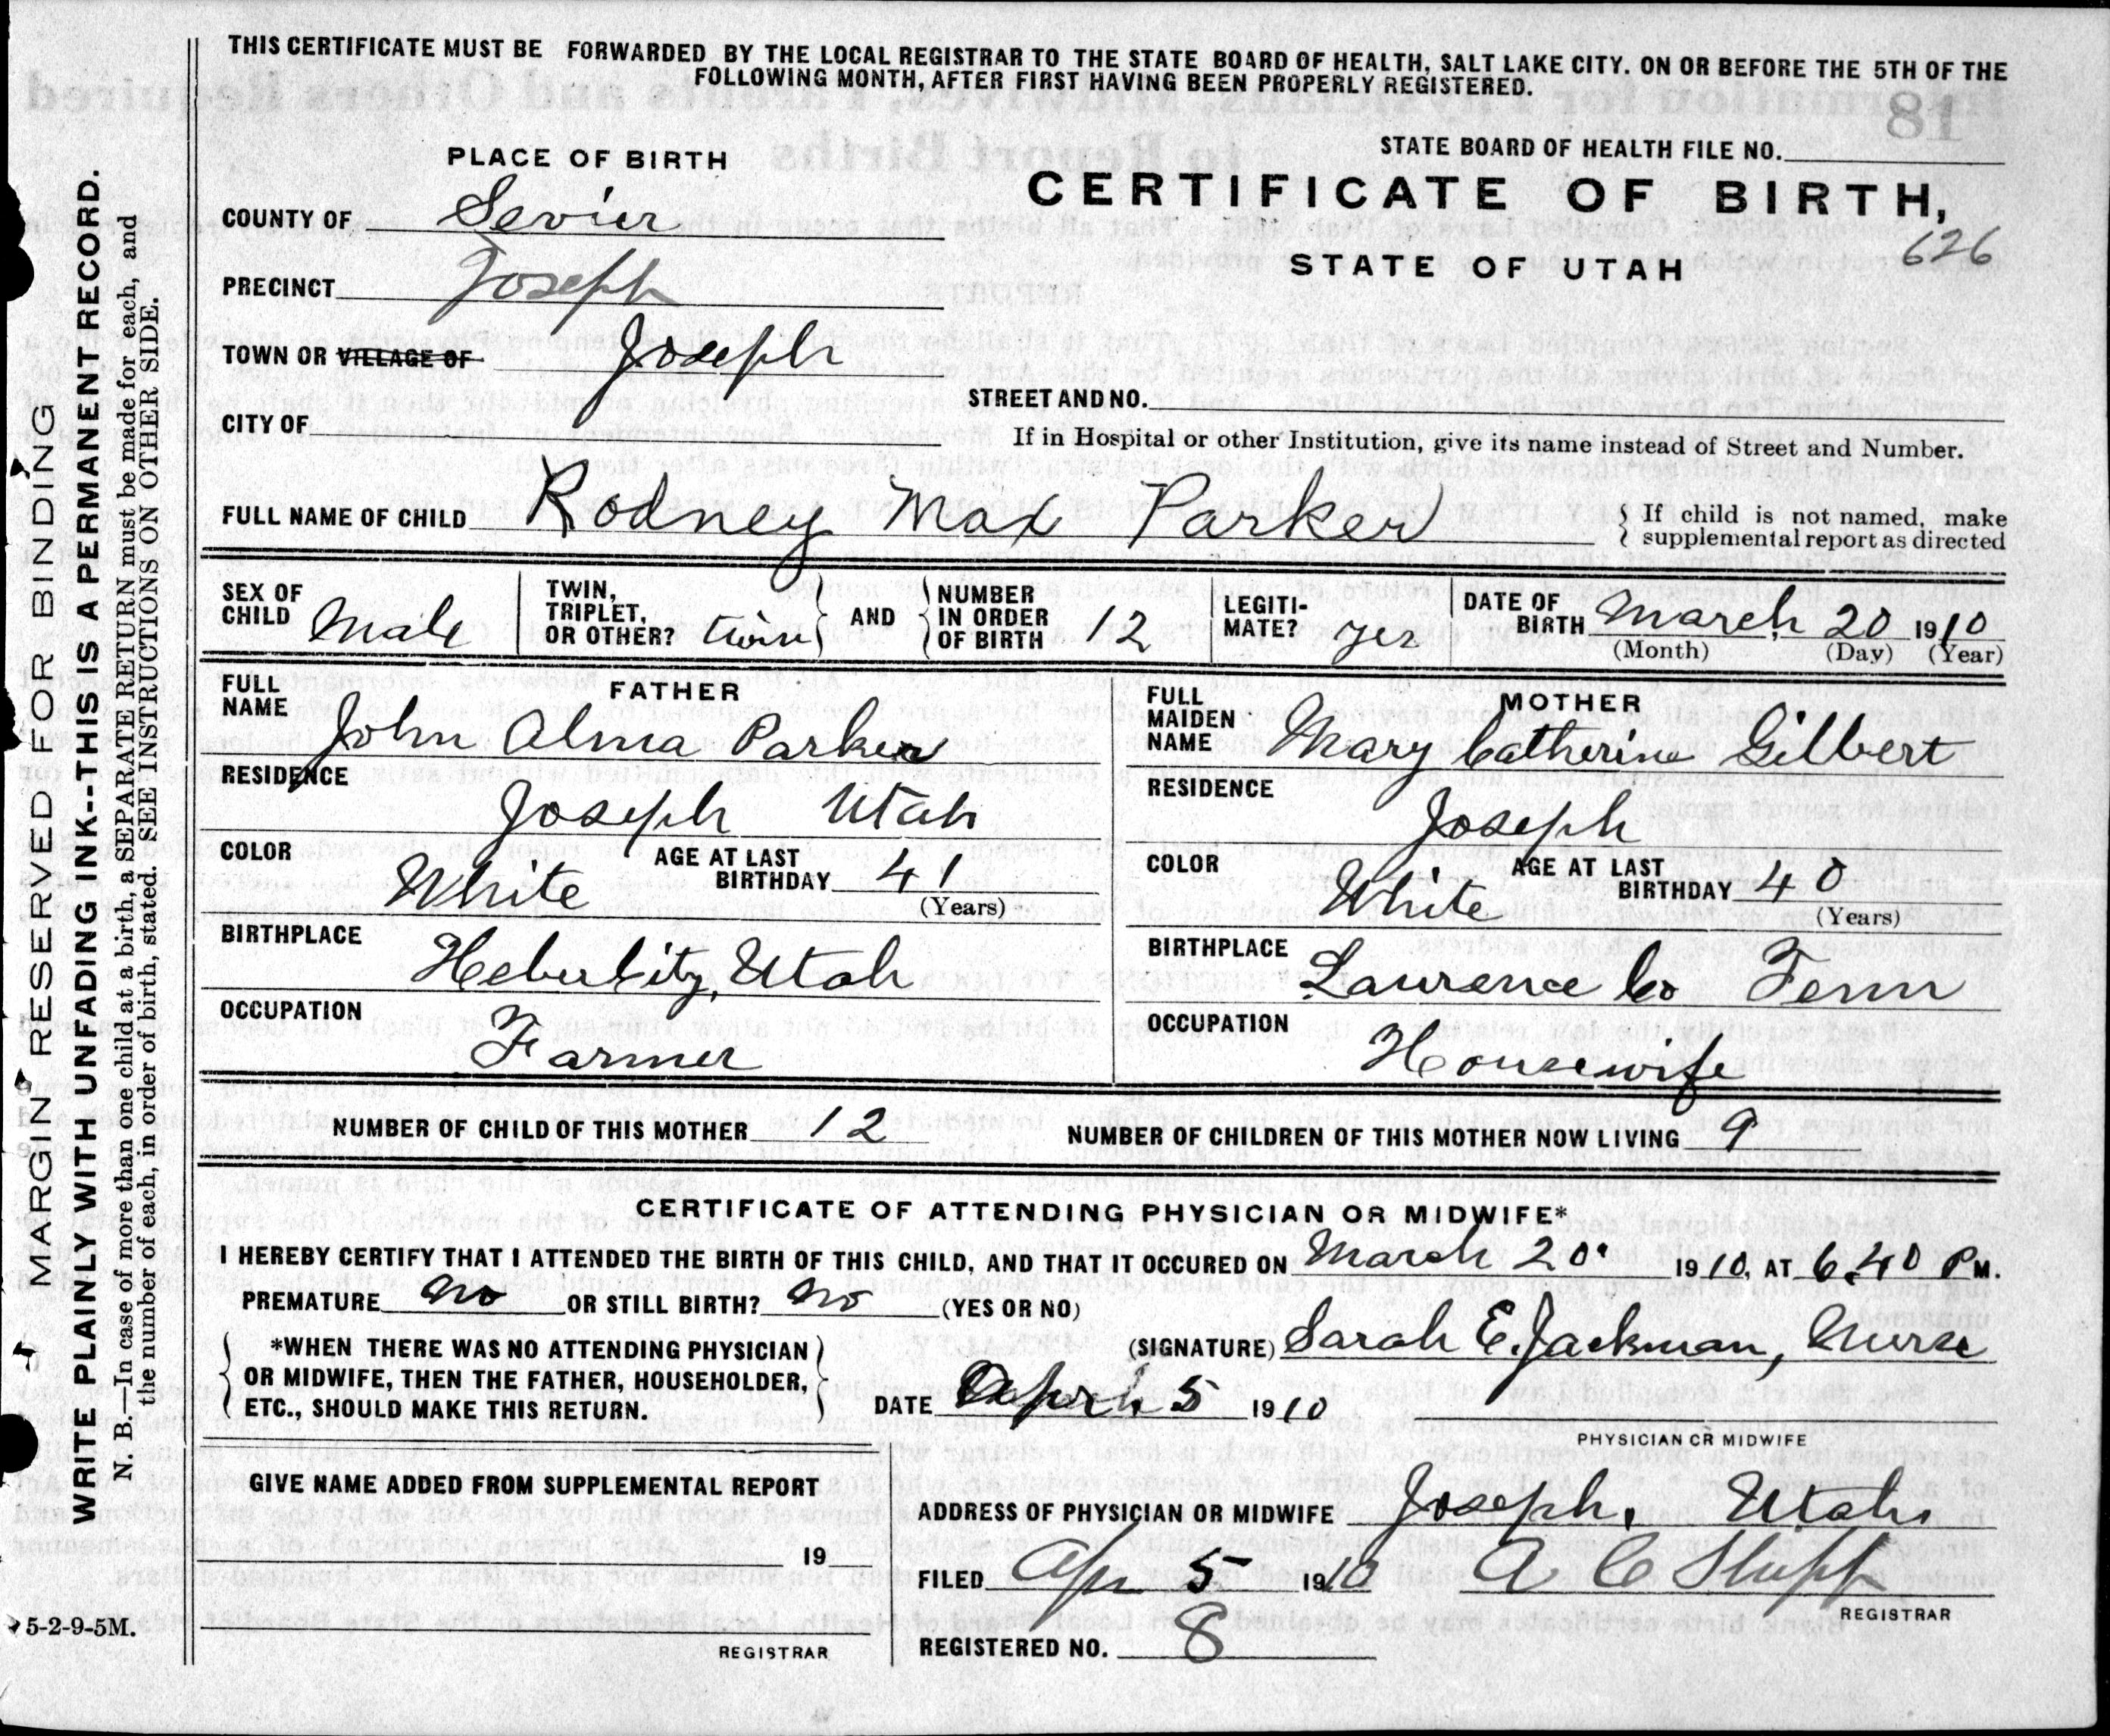 THIS CERTIFICATE MUST BE FORWARDED BY THE LOCAL REGISTRAR TO THE STATE BOARD OF HEALTH, SALT LAKE CITY. ON OR BEFORE THE 5TH OF THE
FOLLOWING MONTH, AFTER FIRST HAVING BEEN PROPERLY REGISTERED.
18
STATE BOARD OF HEALTH FILE NO.
PLACE OF BIRTH
CERTIFICATE OF BIRTH,
COUNTY OF Sevier
626
STATE OF UTAH
PRECINCT Joseph
TOWN OR VILLAGE OF Joseph
STREET AND NO.
CITY OF
If in Hospital or other Institution, give its name instead of Street and Number.
FULL NAME OF CHILD Rodney Max Parker
If child is not named, make
supplemental report as directed
SEX OF CHILD Male
TWIN, TRIPLET, OR OTHER? twin
AND
NUMBER IN ORDER OF BIRTH 12
LEGITI-MATE? Yes
DATE OF BIRTH March 20 1910
(Month) (Day) (Year)
FATHER
FULL NAME John Alma Parker
MOTHER
FULL MAIDEN NAME Mary Catherine Gilbert
RESIDENCE Joseph Utah
RESIDENCE Joseph
COLOR White AGE AT LAST BIRTHDAY 41 (Years)
COLOR White AGE AT LAST BIRTHDAY 40 (Years)
BIRTHPLACE Heber City, Utah
BIRTHPLACE Laurence Co Tenn
OCCUPATION Farmer
OCCUPATION Housewife
NUMBER OF CHILD OF THIS MOTHER 12 NUMBER OF CHILDREN OF THIS MOTHER NOW LIVING 9
CERTIFICATE OF ATTENDING PHYSICIAN OR MIDWIFE*
I HEREBY CERTIFY THAT I ATTENDED THE BIRTH OF THIS CHILD, AND THAT IT OCCURED ON March 20 1910, AT 6.40 P M.
PREMATURE No OR STILL BIRTH? No (YES OR NO)
*WHEN THERE WAS NO ATTENDING PHYSICIAN
OR MIDWIFE, THEN THE FATHER, HOUSEHOLDER,
ETC., SHOULD MAKE THIS RETURN.
(SIGNATURE) Sarah E. Jackman, Nurse
DATE April 5 1910
PHYSICIAN OR MIDWIFE
GIVE NAME ADDED FROM SUPPLEMENTAL REPORT
19
REGISTRAR
ADDRESS OF PHYSICIAN OR MIDWIFE Joseph, Utah
FILED Apr 5 1910 A C Shipp
REGISTRAR
REGISTERED NO. 8
MARGIN RESERVED FOR BINDING
WRITE PLAINLY WITH UNFADING INK--THIS IS A PERMANENT RECORD.
N. B.—In case of more than one child at a birth, a SEPARATE RETURN must be made for each, and
the number of each, in order of birth, stated. SEE INSTRUCTIONS ON OTHER SIDE.
5-2-9-5M.